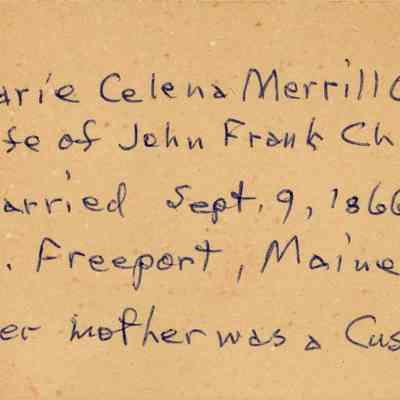 arie Celena Merrill C
fe of John Frank Ch
arried Sept. 9, 1866
. Freeport, Maine
er mother was a Cus